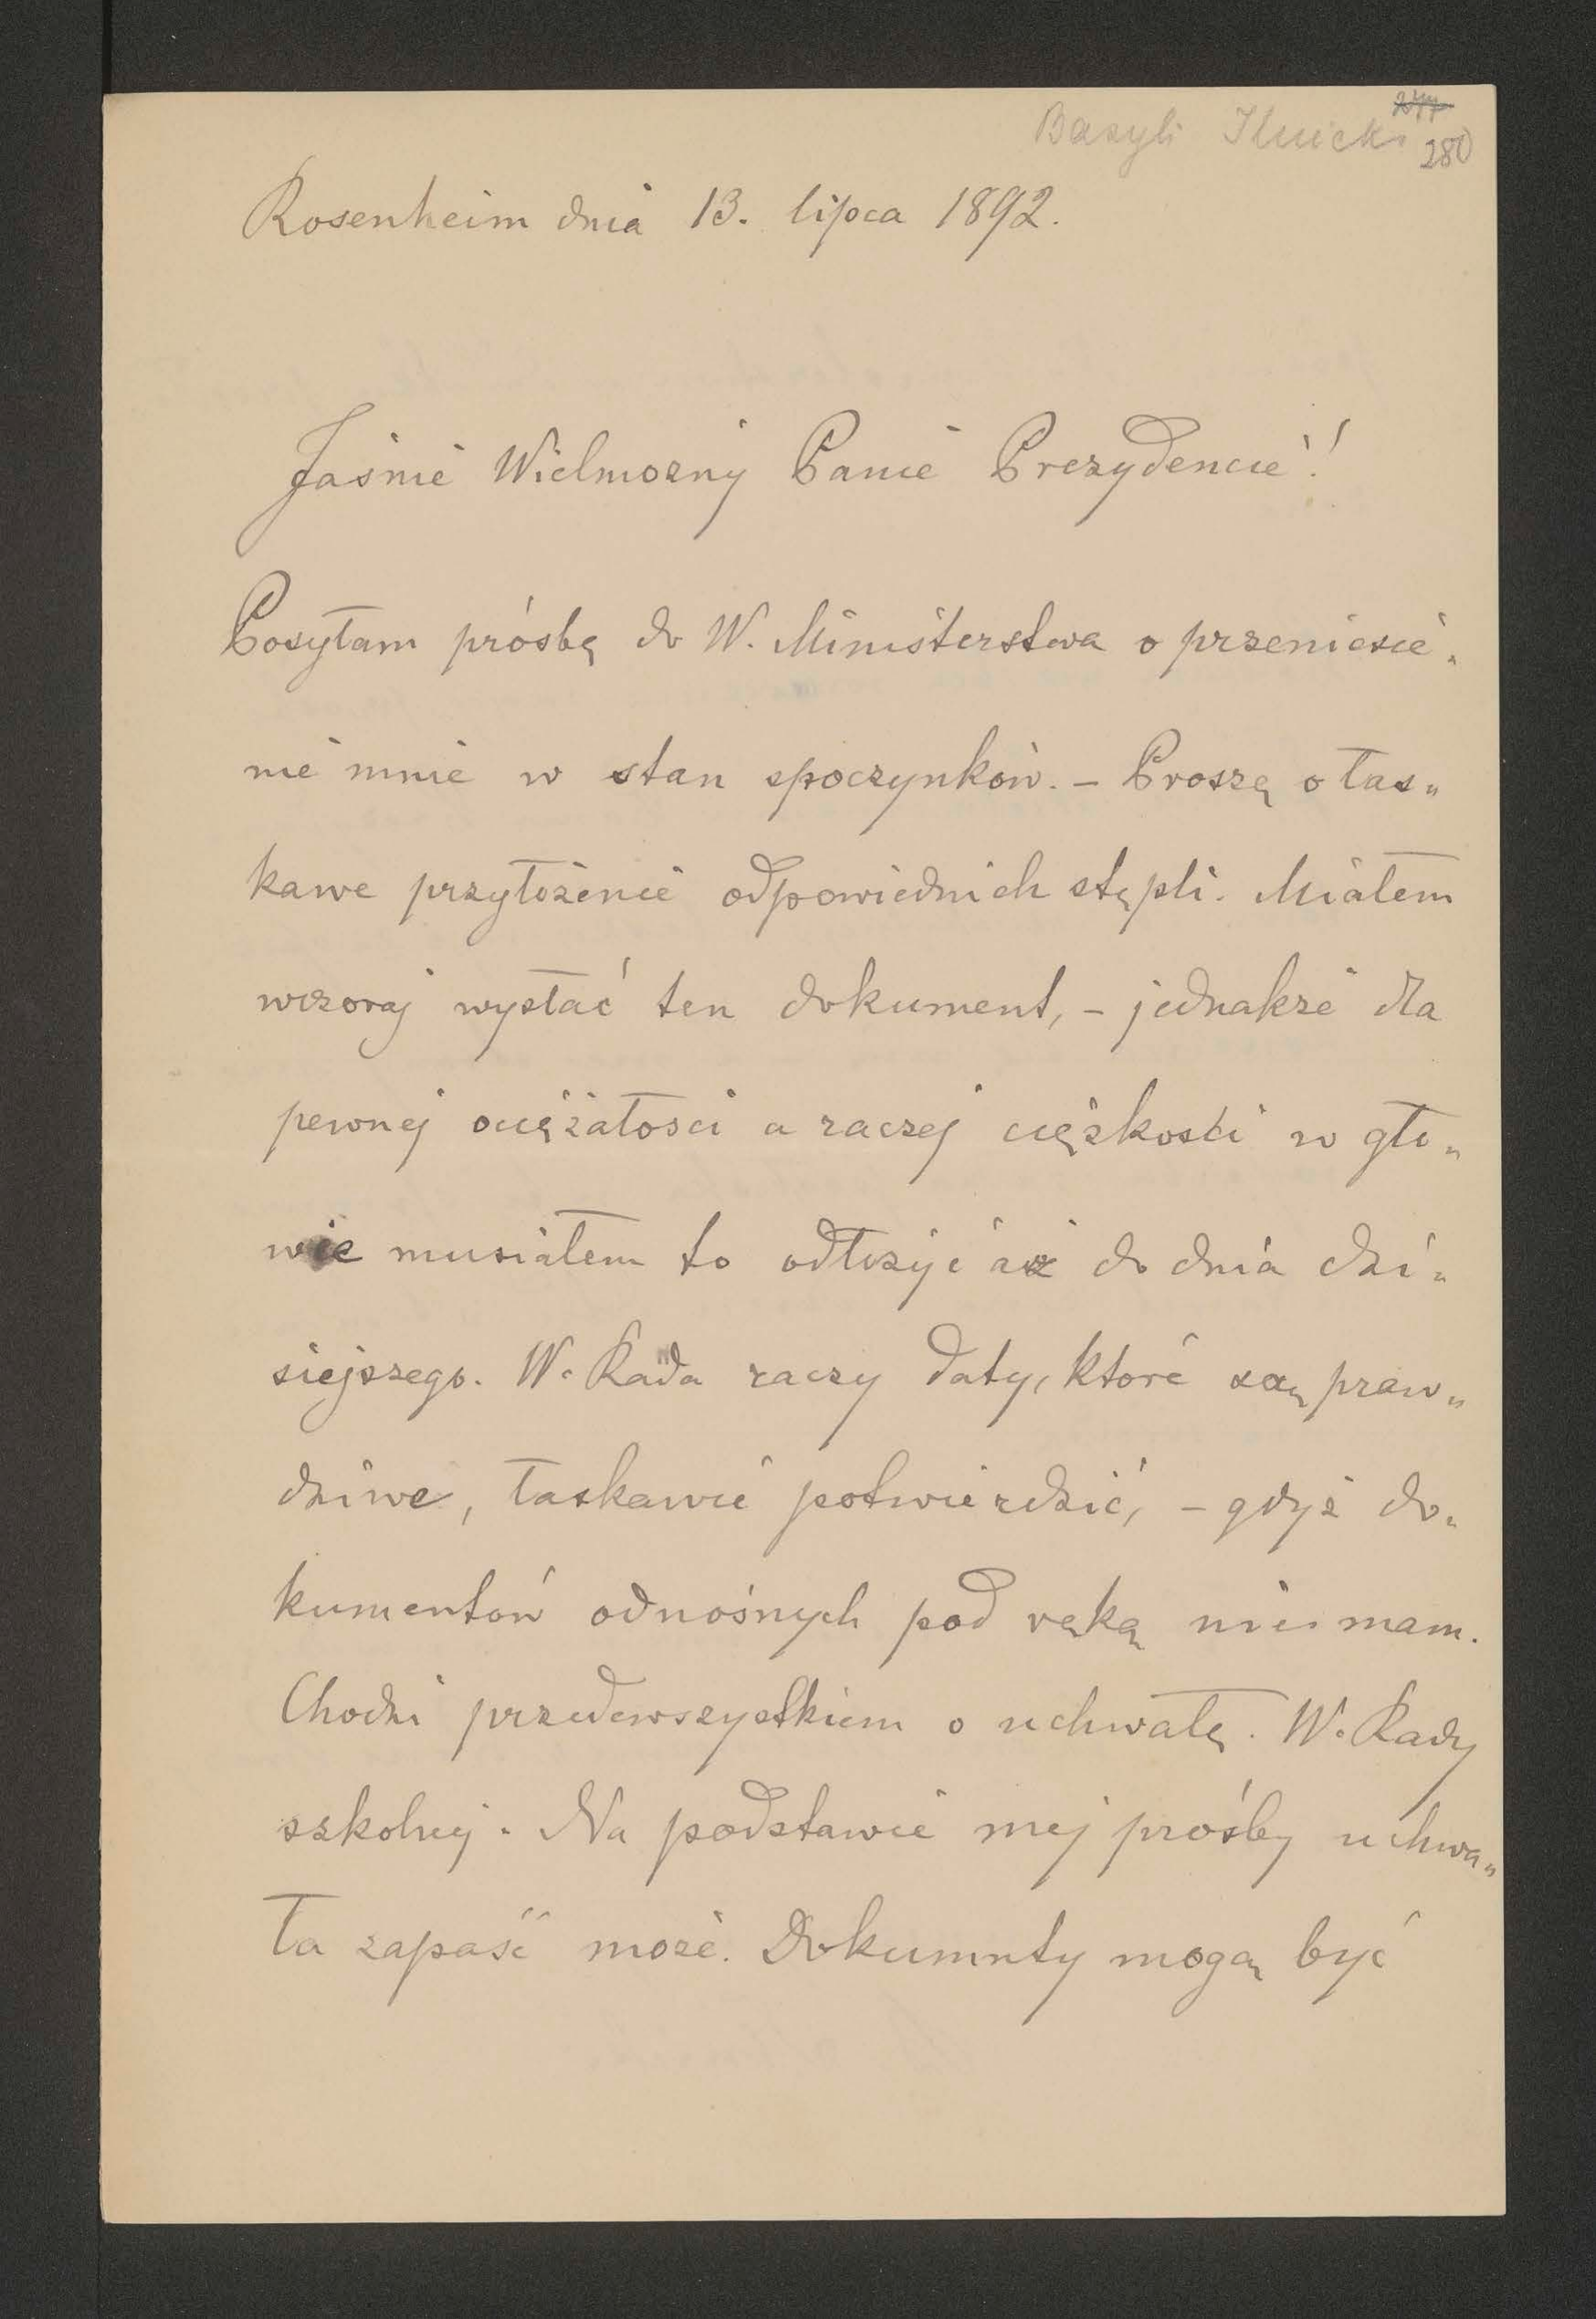 Basyli Ilnicki 277
280
Rosenheim dnia 13. lipca 1892.
Jaśnie Wielmożny Panie Prezydencie!
Posyłam prósbę do W. Ministerstwa o przeniesie„
nie mnie w stan spoczynków. – Proszę o łas„
kawe przyłożenie odpowiednich stępli. Miałem
wczoraj wysłać ten dokument, – jednakże dla
pewnej ociężałości a raczej ciężkości w gło„
wie musiałem to odłożyć aż do dnia dzi„
siejszego. W. Rada raczy daty, które są praw„
dziwe, łaskawie potwierdzić, – gdyż do„
kumentów odnośnych pod ręką nie mam.
Chodzi przedewszystkiem o uchwałę. W. Rady
szkolnej. Na podstawie mej prośby uchwa„
ła zapaść może. Dokumnty mogą być